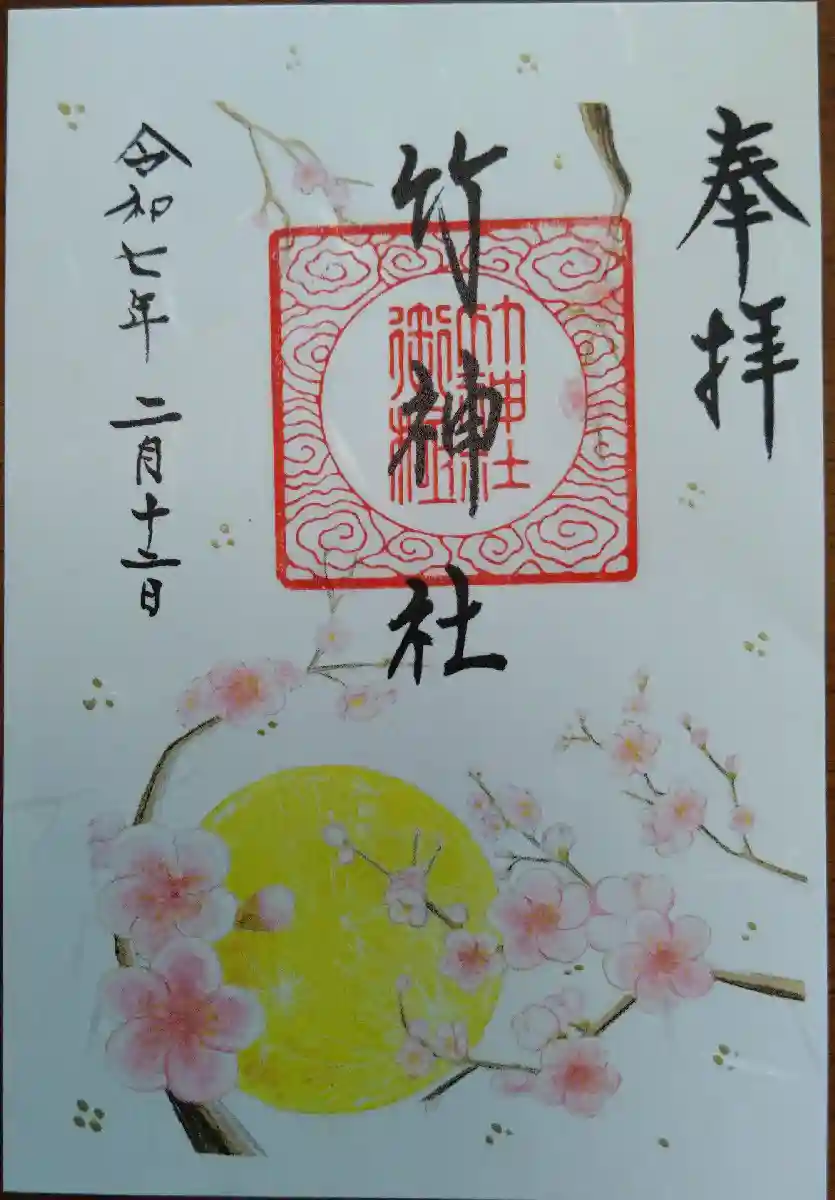 奉拝
竹神社
竹神社
御璽
令和七年 二月十二日